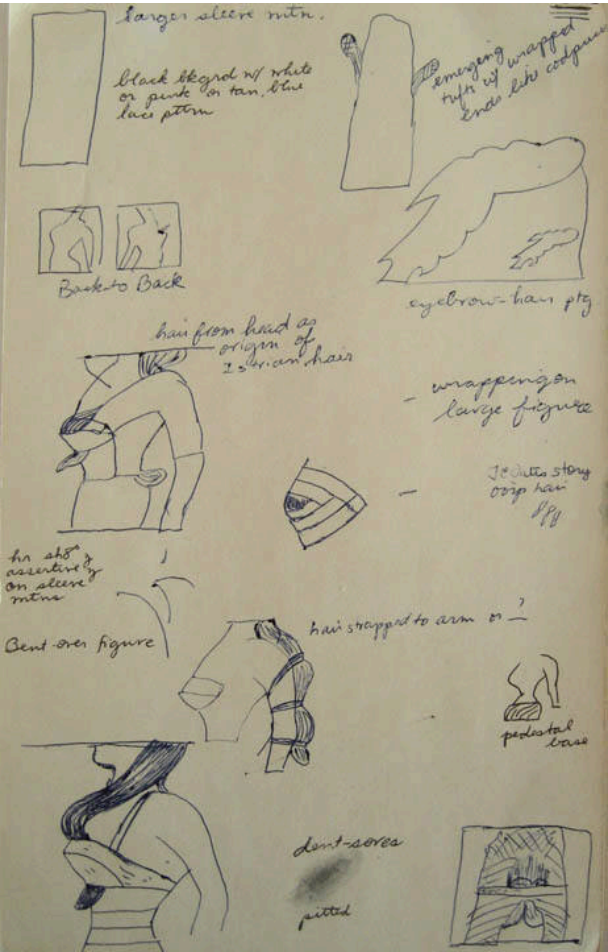 larger sleeve mtn.
black bkgrd w/ white
or pink or tan, blue
lace pttrn
emerging wrapped
tufts w/ wrapped
ends like codpiece
Back-to Back
eyebrow-hair ptg
hair from head as
origin of
hair
- wrapping on
large figure
story
hair
assertive
on sleeve
mtns
Bent-over figure
hair strapped to arm or ?
pedestal
base
dent-sores
pitted